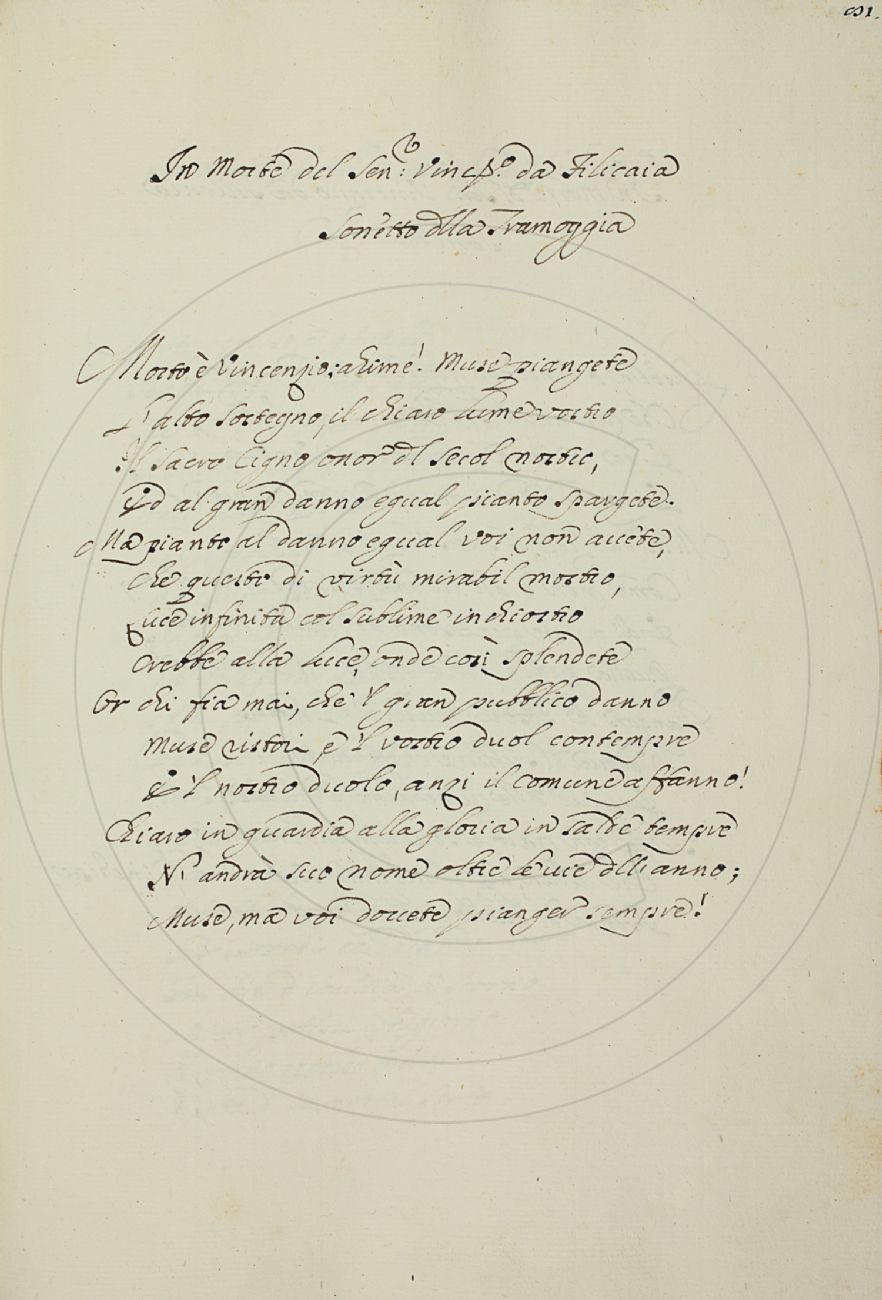 In Morte del Sen:r Vinc:o da Filicaia
Sonetto dlla Tramoggia
Morto è Vincenzio; ahime! Muse piangete
L'alto sostegno, il chiaro lume vostro
Il sacro Cigno, onor dl secol nostro,
Ed al gran danno egual pianto spargete.
Ma pianto al danno egual voi non avete,
Che questo di virtù mirabil mostro,
Luce infinita col sublime inchiostro
Crebbe alla luce, onde così splendete
Or chi fia mai, che 'l gran pubblico danno
Muse ristori, e 'l vostro duol contempre
E 'l nostro duolo, anzi il comune affanno!
Chiaro in guardia alla gloria in salde tempre
N'andrà suo nome oltre le vie dll'anno;
Muse, ma voi dovete pianger sempre!